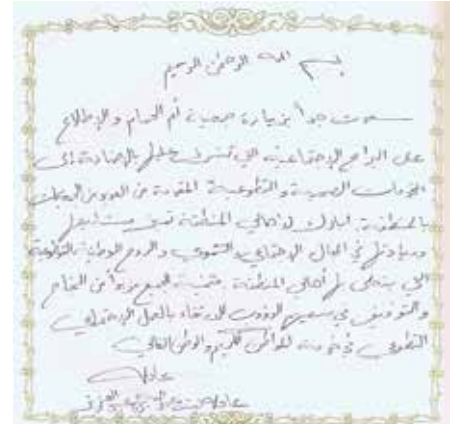 بسم الله الرحمن الرحيم
سعدت جداً بزيارة جمعية أم الحمام والإطلاع
على البرامج الإجتماعية التي تشرف عليها بالإضافة إلى
الخدمات الصحية والتطوعية المقدمة من العديد من
بالمنطقة أبارك لأهالي المنطقة
وريادتها في المجال الإجتماعي والتنموي والروح الوطنية والتطوعية
التي يتحلى بها أهالي المنطقة متمنية للجميع مزيداً من النجاح
والتوفيق في سعيهم الدؤوب للإرتقاء بالعمل الإجتماعي
التطوعي في خدمة المواطن الكريم والوطن الغالي
عادلة
عادلة بنت عبدالله بن عبدالعزيز